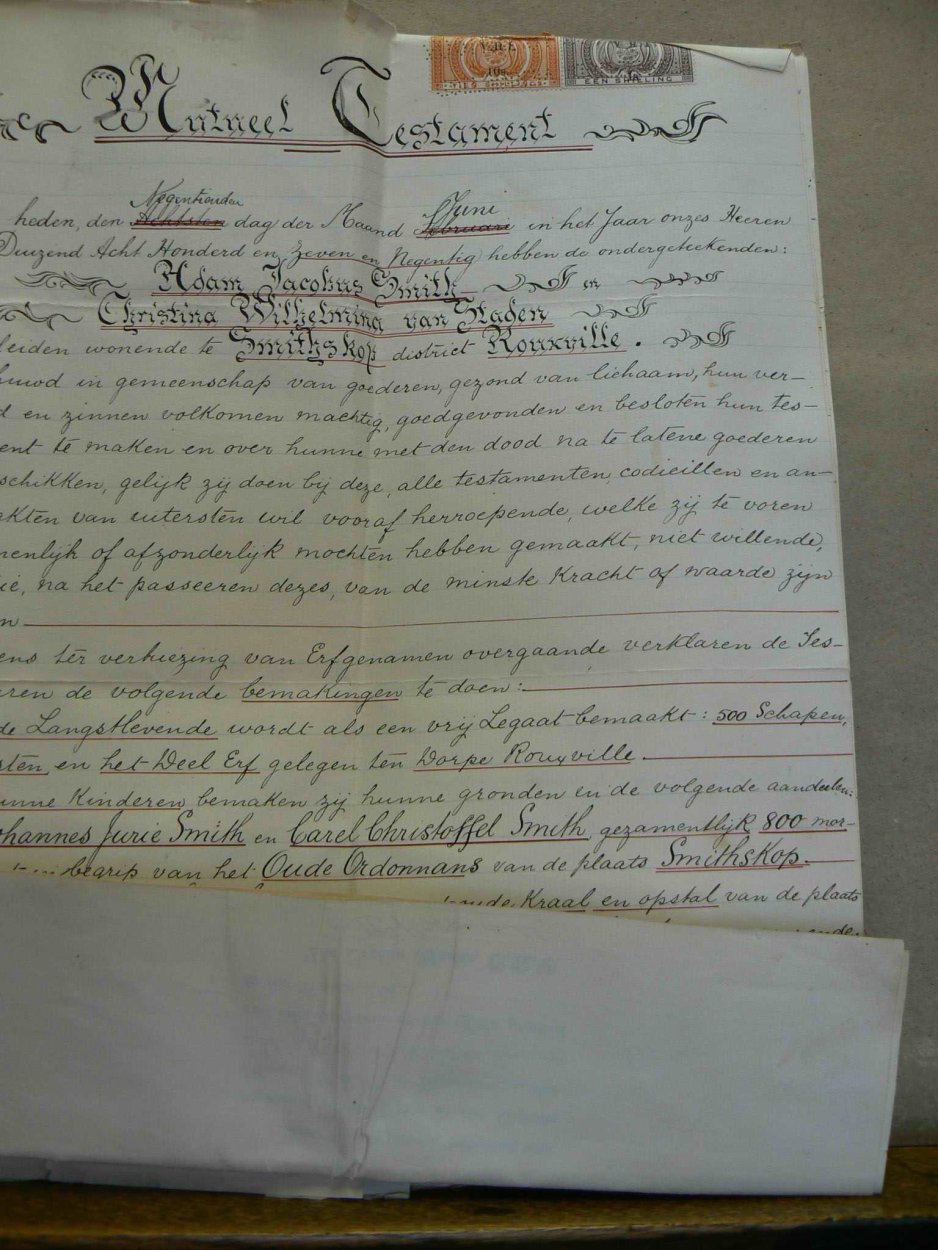 V.R.I.
10s.
EEN SHILLING
Mutueel Testament
Negenthonden Juni
heden, den Achtsten dag der Maand Februari in het Jaar onzes Heeren
Duizend Acht Honderd en Zeven en Negentig hebben de ondergeteekenden:
Adam Jacobus Smith en
Christina Wilhelmina van Staden
leiden wonende te Smithskop district Rouxville.
huwd in gemeenschap van goederen, gezond van lichaam, hun ver-
d en zinnen volkomen machtig, goedgevonden en besloten hun tes-
ent te maken en over hunne met den dood na te latene goederen
schikken, gelijk zij doen bij deze, alle testamenten, codicillen en an-
akten van uitersten wil vooraf herroepende, welke zij te voren
menlijk of afzonderlijk mochten hebben gemaakt, niet willende,
ie, na het passeeren dezes, van de minste Kracht of waarde zijn
n
ens ter verkiezing van Erfgenamen overgaande verklaren de Tes-
ren de volgende bemakingen te doen:
de Langstlevende wordt als een vrij Legaat bemaakt: 500 Schapen,
sten, en het Deel Erf gelegen ten Dorpe Rouxville.
unne Kinderen bemaken zij hunne gronden en de volgende aandeelen:
ohannes Jurie Smith en Carel Christoffel Smith, gezamentlijk 800 mor-
begrip van het Oude Ordonnans van de plaats Smithskop.
oude Kraal en opstal van de plaats